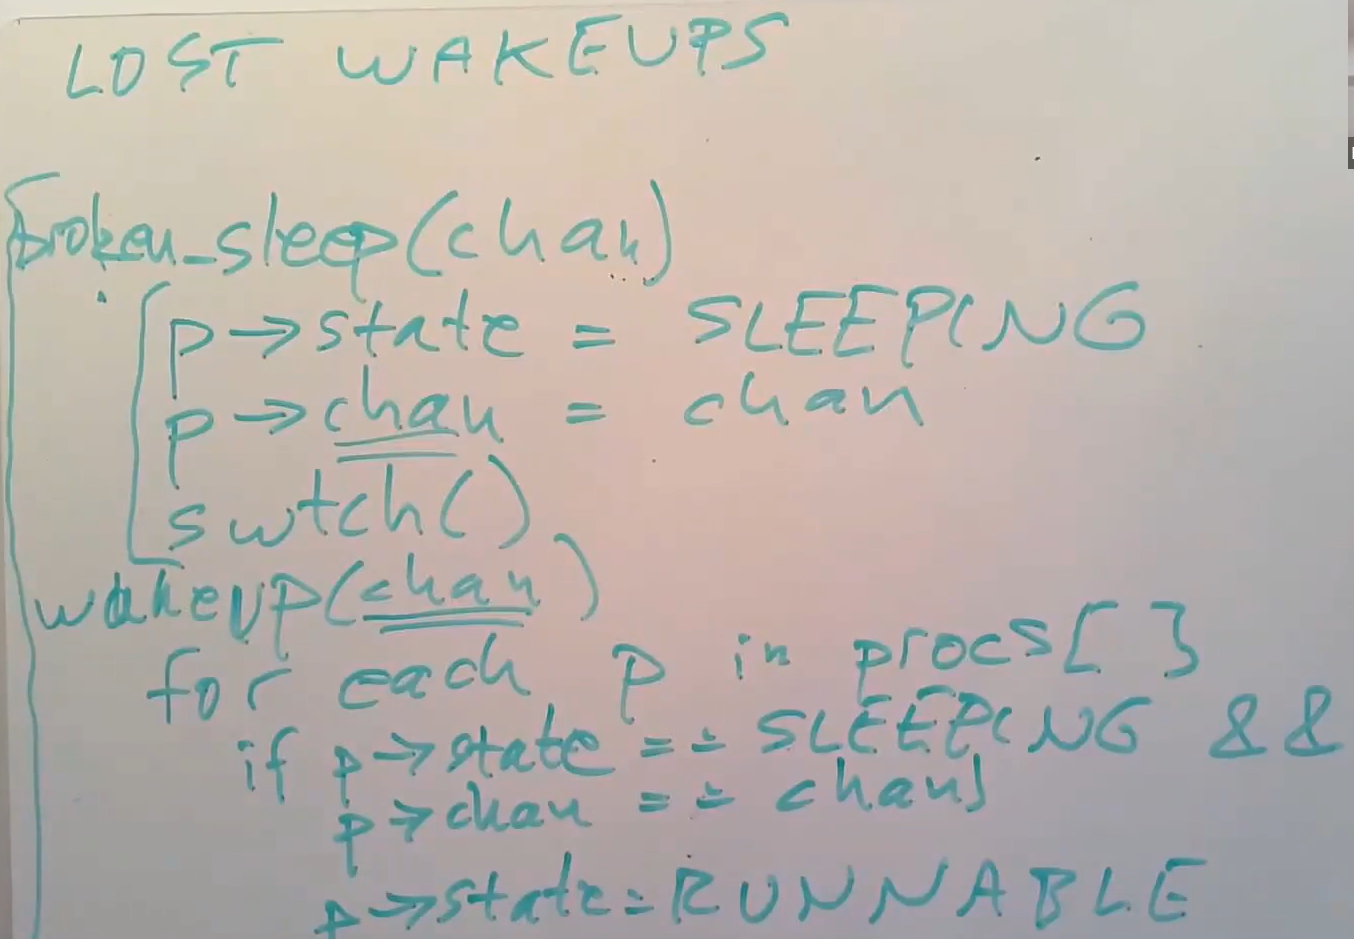 LOST WAKEUPS
broken_sleep(chan)
p→state = SLEEPING
p→chan = chan
swtch()
wakeup(chan)
for each p in procs[]
if p→state == SLEEPING &&
p→chan == chan
p→state=RUNNABLE